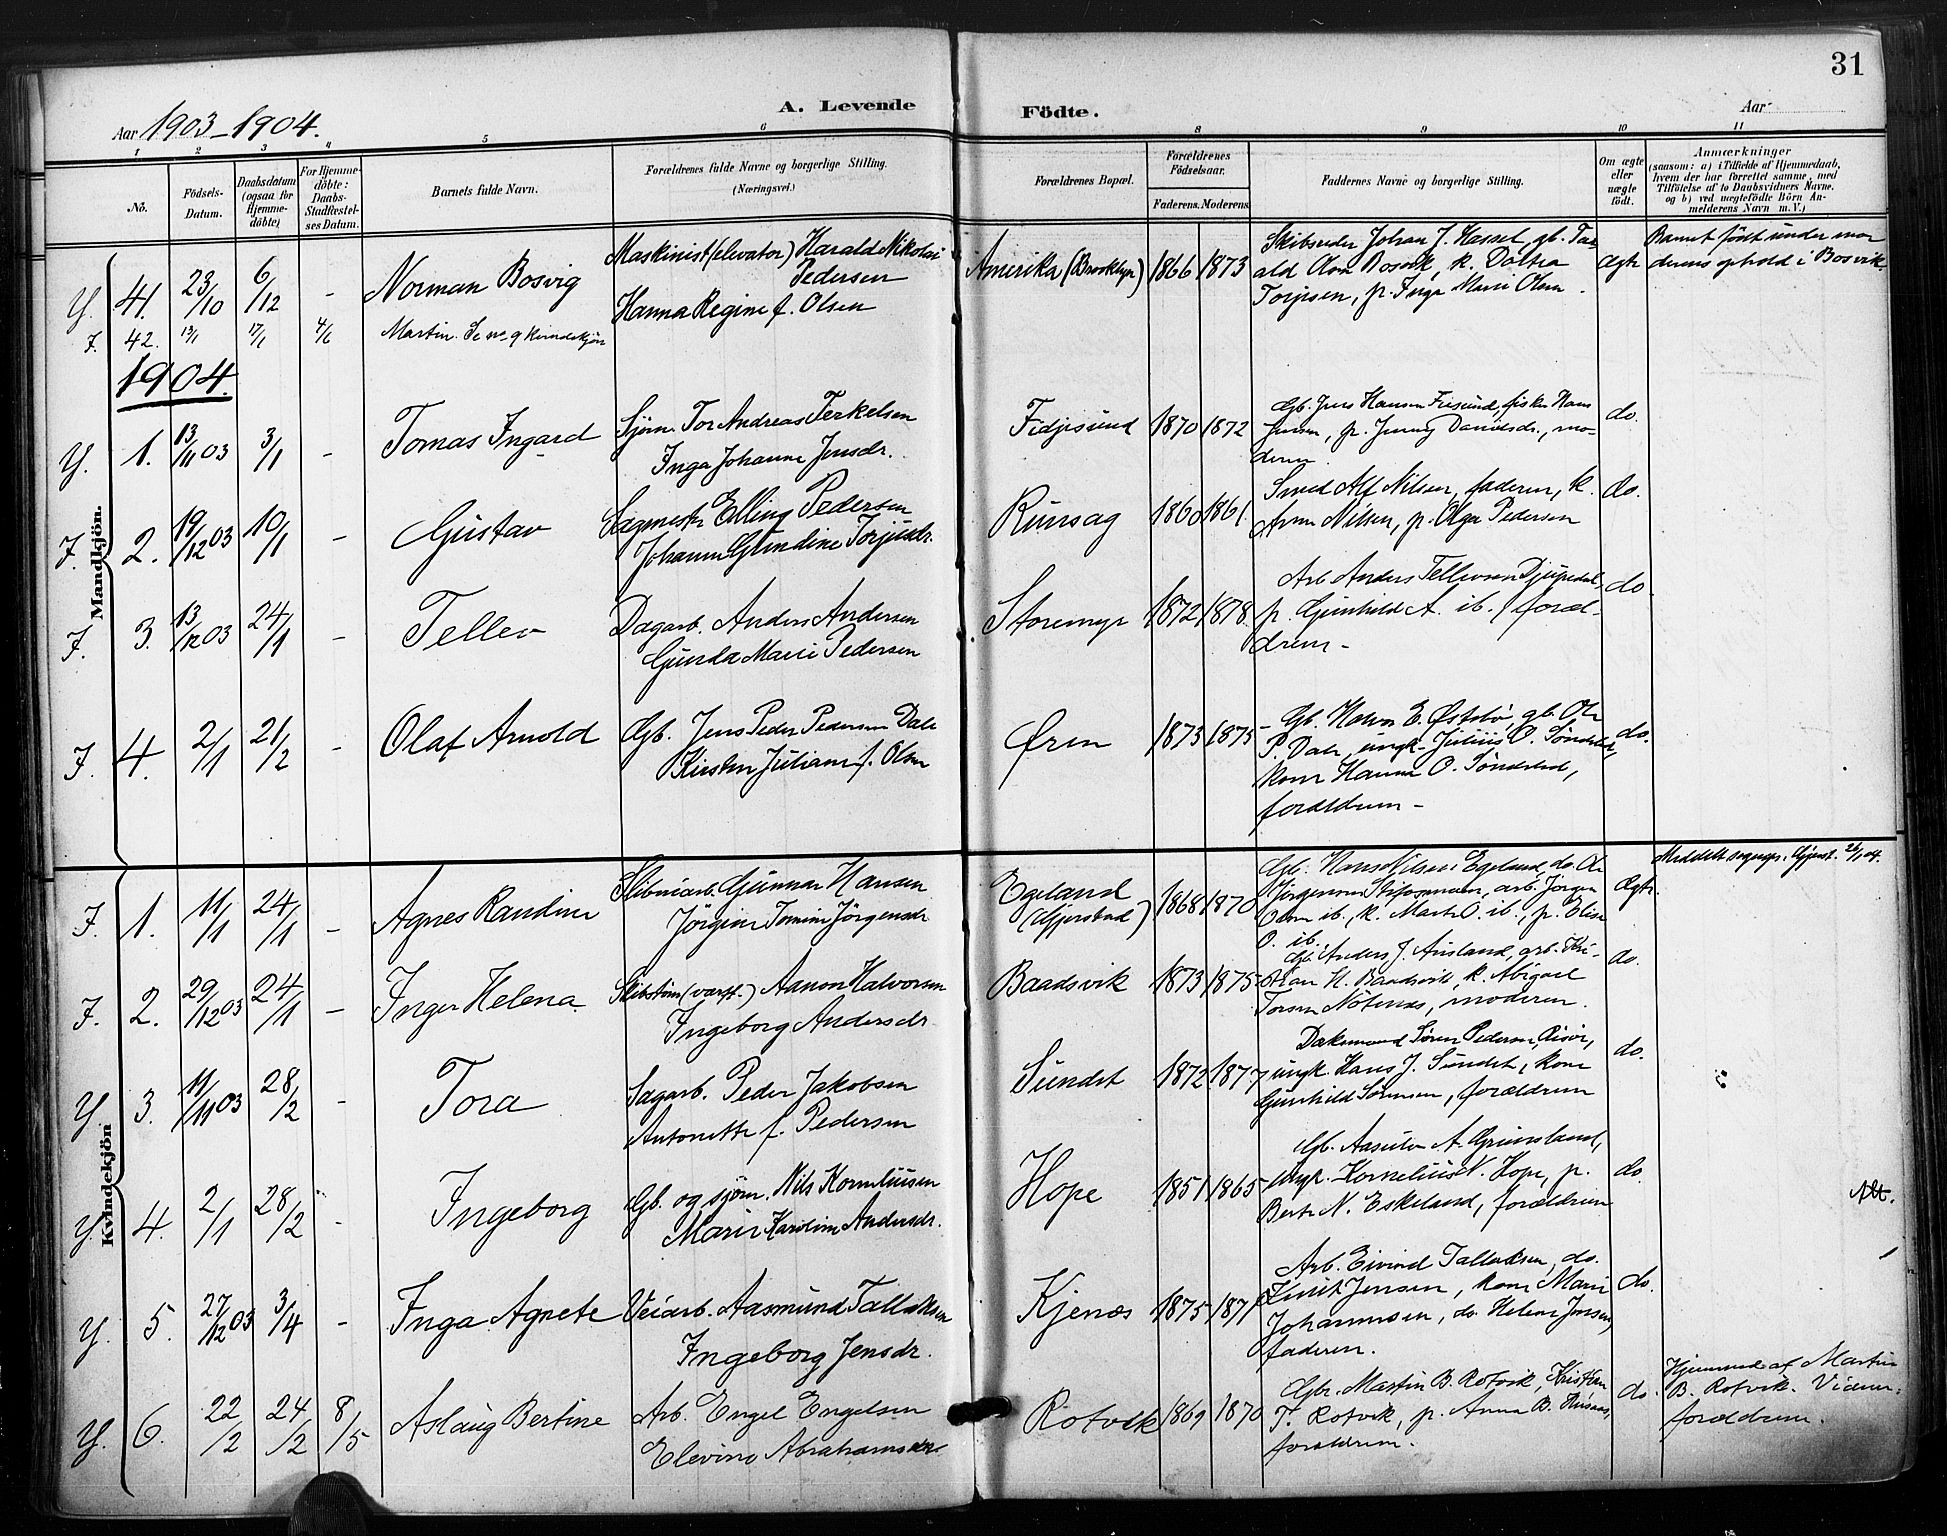 31
A. Levende Födte.
Aar 1903-1904.
Aar
1 2 3 4 5 6 8 9 10 11
No.
Födsels-
Datum.
Daabsdatum
(ogsaa for
Hjemme-
döbte)
For Hjemme-
döbte:
Daabs-
Stadfæstel-
ses Datum.
Barnets fulde Navn.
Forældrenes fulde Navne og borgerlige Stilling.
(Næringsvei.)
Forældrenes Bopæl.
Forældrenes
Födselsaar.
Faderens. Moderens.
Faddernes Navne og borgerlige Stilling.
Om ægte
eller
uægte
födt.
Anmærkninger
(saasom: a) i Tilfælde af Hjemmedaab,
hvem der har forrettet samme, med
Tilföielse af to Daabsvidners Navne.
og b) ved uægtefödte Börn An-
melderens Navn m. V.)
Mandkjön.
Y. 41. 23/10 6/12 - Norman Bosvig
Maskinist (elevator) Harald Nikolai
Pedersen
Hanna Regine f. Olsen
Amerika (Brooklyn) 1866 1873
Skibsreder Johan J. Hasset, gb. Tar
ald Olsen Bosvik, k. Daltea
Torjesen, p. Inga Marie Olsen.
Ægte
Barnet födt under mo
derens ophold i Bosvik.
F. 42. 13/1 17/1 4/6 Martin. Se no 9 kvindekjön
1904.
Y. 1. 13/11 03 3/1 - Tomas Ingard
Sjöm. Tor Andreas Terkelsen
Inga Johanne Jensdr.
Fidjesund 1870 1872
Gb. Jens Hansen Fresund, fisker Hans
Jensen, p. Jenny Danielsdr., mo-
deren.
do.
F. 2. 19/12 03 10/1 - Gustav
Sagmester Elling Pedersen
Johanne Gundine Torjusdr.
Runsag 1860 1861
Smed Alf Nilsen, faderen, k.
Anne Nilsen, p. Olga Pedersen
do.
F. 3. 13/12 03 24/1 - Tellev
Dagarb. Anders Andersen
Gunda Marie Pedersen
Storemyr 1872 1878.
Arb. Anders Tellevsen Djupedal,
p. Gunhild A. ib. foræl-
drene -
do.
F. 4. 2/1 21/2 - Olaf Arnold
Gb. Jens Peder Pedersen Dale
Kirsten Juliane f. Olsen
Øren 1873 1875 -
Gb. Halvor E. Østebø, gb. Ole
P. Dale, ungk. Julius O. Söndeled,
kone Hanna O. Söndeled,
forældrene -
do.
Kvindekjön
F. 1. 11/1 24/1 - Agnes Randine
Skibniarb. Gunnar Hansen
Jörgine Tomine Jörgensdr
Egeland
(Gjerstad) 1868 1870
Gb. Hans Nilsen Egeland, do. Ole
Jörgensen Stifosmoen, arb. Jörgen
Olsen ib., k. Marte O. ib., p. Elise
O. ib.
Ægte.
Meddelt sognepr. i Gjerst. 26/1 04.
F. 2. 29/12 03 24/1 - Inger Helena
Skibstöm (værft.) Aanon Halvorsen
Ingeborg Andersdr
Baadsvik 1873 1875
Gb. Anders J. Ausland, arb. Kri-
stian H. Baadsvik, k. Abigael
Torsen Nötenes, moderen.
do.
Y. 3. 11/11 03 28/2 - Tora
Sagarb. Peder Jakobsen
Antonette f. Pedersen
Sundet 1872 1877
Dæksmand Sören Pedersen, Risör,
ungk. Hans J. Sundet, kone
Gunhild Sörensen, forældrene
do.
Y. 4. 2/1 28/2 - Ingeborg
Gb. og sjöm. Nils Korneliusen
Marie Karoline Andersdr.
Hope 1851 1865
Gb. Aasulv A. Grimsland,
ungk. Kornelius N. Hope, p.
Berte N. Eskeland, forældrene
do.
Att.
Y. 5. 27/12 03 3/4 - Inga Agnete
Veiarb. Aasmund Tallaksen
Ingeborg Jensdr.
Kjenæs 1875 1877
Arb. Eivind Tallaksen, do.
Knut Jensen, kone Marie
Johannesen, do. Helene Jensen,
faderen.
do.
Y. 6. 22/2 24/2 8/5 Aslaug Bertine
Arb. Engel Engelsen
Elevine Abrahamsdr
Rotvik 1869 1870
Gbr. Martin B. Rotvik, Kristian
T. Rotvik, p. Anna B. Husaas,
forældrene.
do.
Hjemmed. af Martin
B. Rotvik. Vidner:
forældrene.